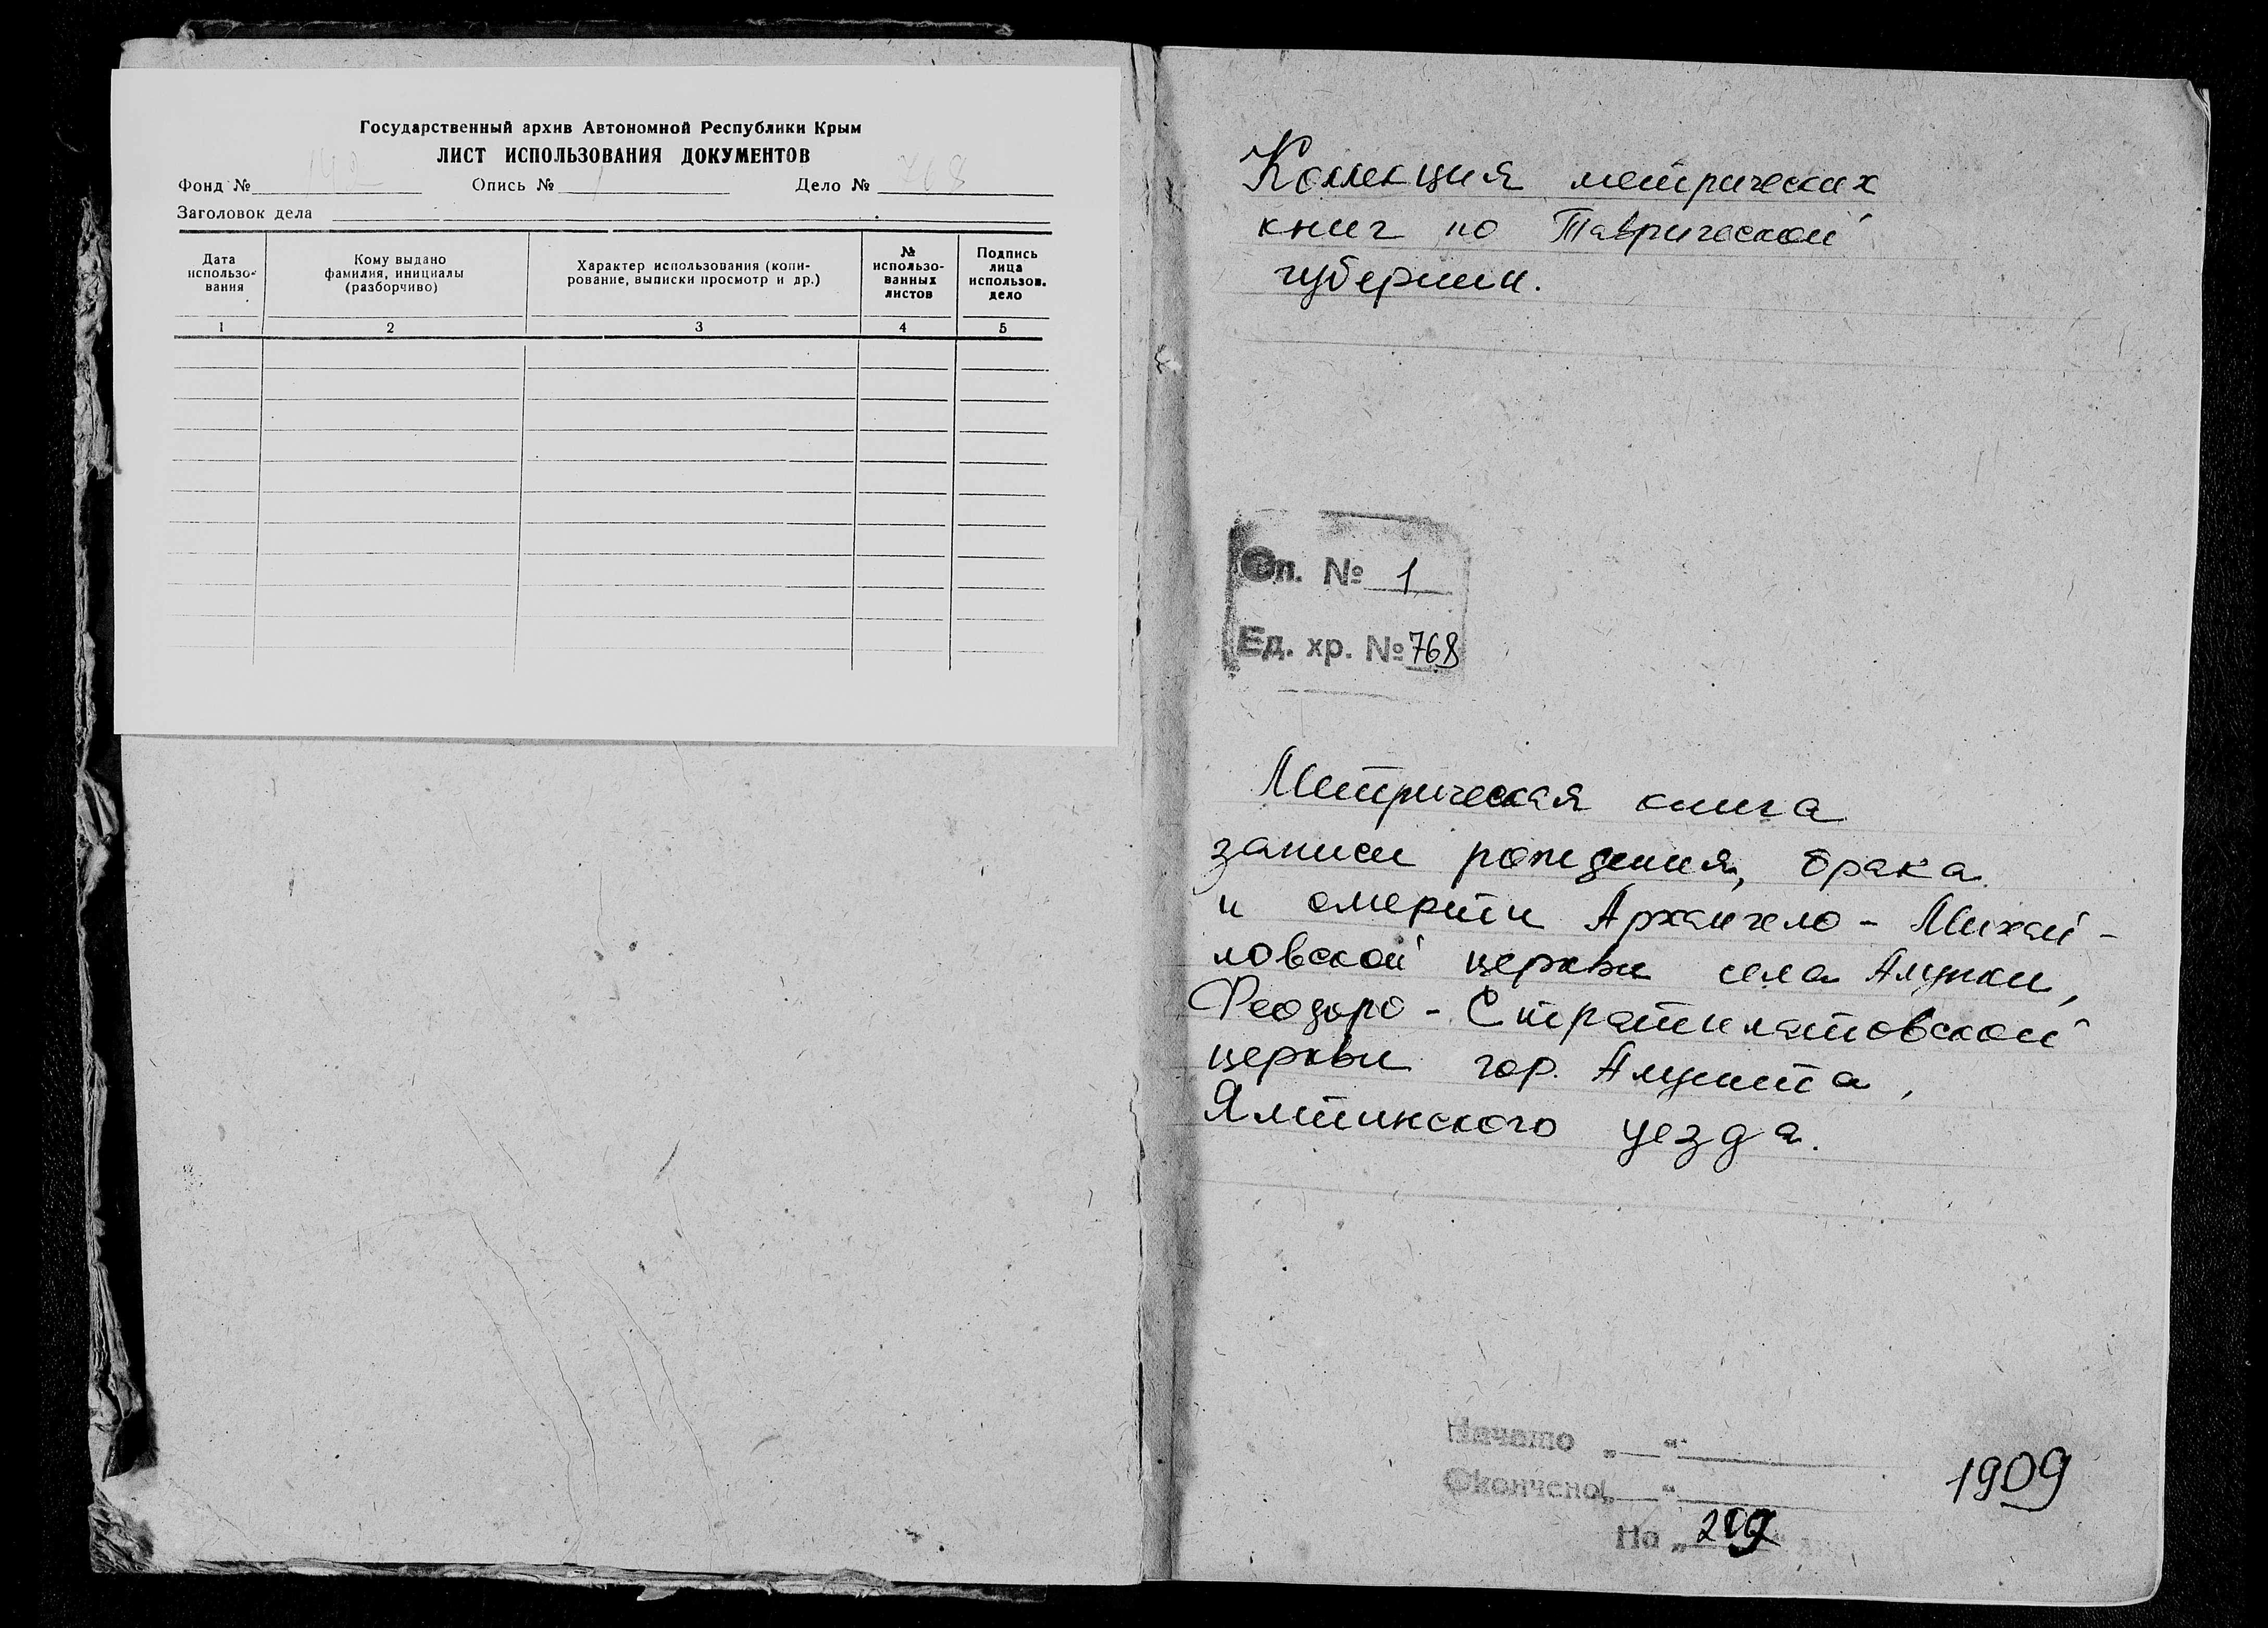 Государственный архив Автономной Республики Крым
ЛИСТ ИСПОЛЬЗОВАНИЯ ДОКУМЕНТОВ
Фонд № Опись № 1 Дело № 768
Заголовок дела
Дата использо-вания
Кому выдано фамилия, инициалы (разборчиво)
Характер использования (копи-рование, выписки просмотр и др.)
№ использо-ванных листов
Подпись лица использов. дело
1 2 3 4 5
Коллекция метрических
книг по Таврической
губернии.
Оп. № 1
Ед. хр. № 768
Метрическая книга
записи рождения, брака
и смерти Архангело-Михай-
ловской церкви села Алупки,
Феодоро-Стратилатовской
церкви гор. Алушта,
Ялтинского уезда.
Начато „ “
Окончено „ “
1909
На „